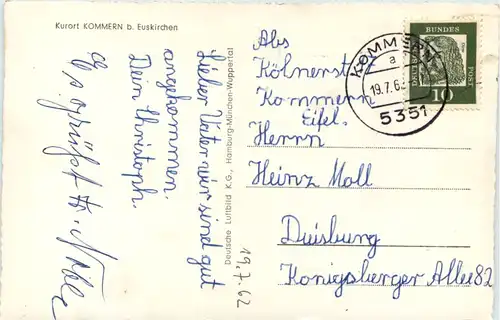 Kurort KOMMERN b. Euskirchen
Lieber Vater wir sind gut
angekommen.
Dein Christoph.
Es grüßt
19.7.62
Deutsche Luftbild K.G., Hamburg-München-Wuppertal
KOMMERN
a
19.7.62
5351
DEUTSCHE BUNDESPOST
10
Abs
Kölnerstr
Kommern
Eifel.
Herrn
Heinz Moll
Duisburg
Königsberger Allee 82